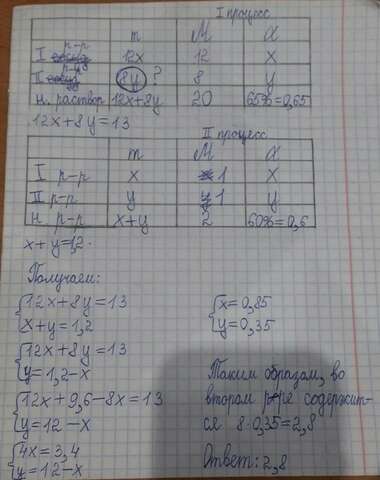 I процесс
m M α
I р-р 12x 12 x
II р-р 8y ? 8 y
н. раствор 12x+8y 20 65%=0,65
12x+8y=13
II процесс
m M α
I р-р x 1 x
II р-р y 1 y
н. р-р x+y 2 60%=0,6
x+y=1,2.
Получаем:
{12x+8y=13
{x+y=1,2
{12x+8y=13
{y=1,2-x
{12x+9,6-8x=13
{y=12-x
{4x=3,4
{y=12-x
{x=0,85
{y=0,35
Таким образом, во
втором р-ре содержит-
ся 8·0,35=2,8
Ответ: 2,8